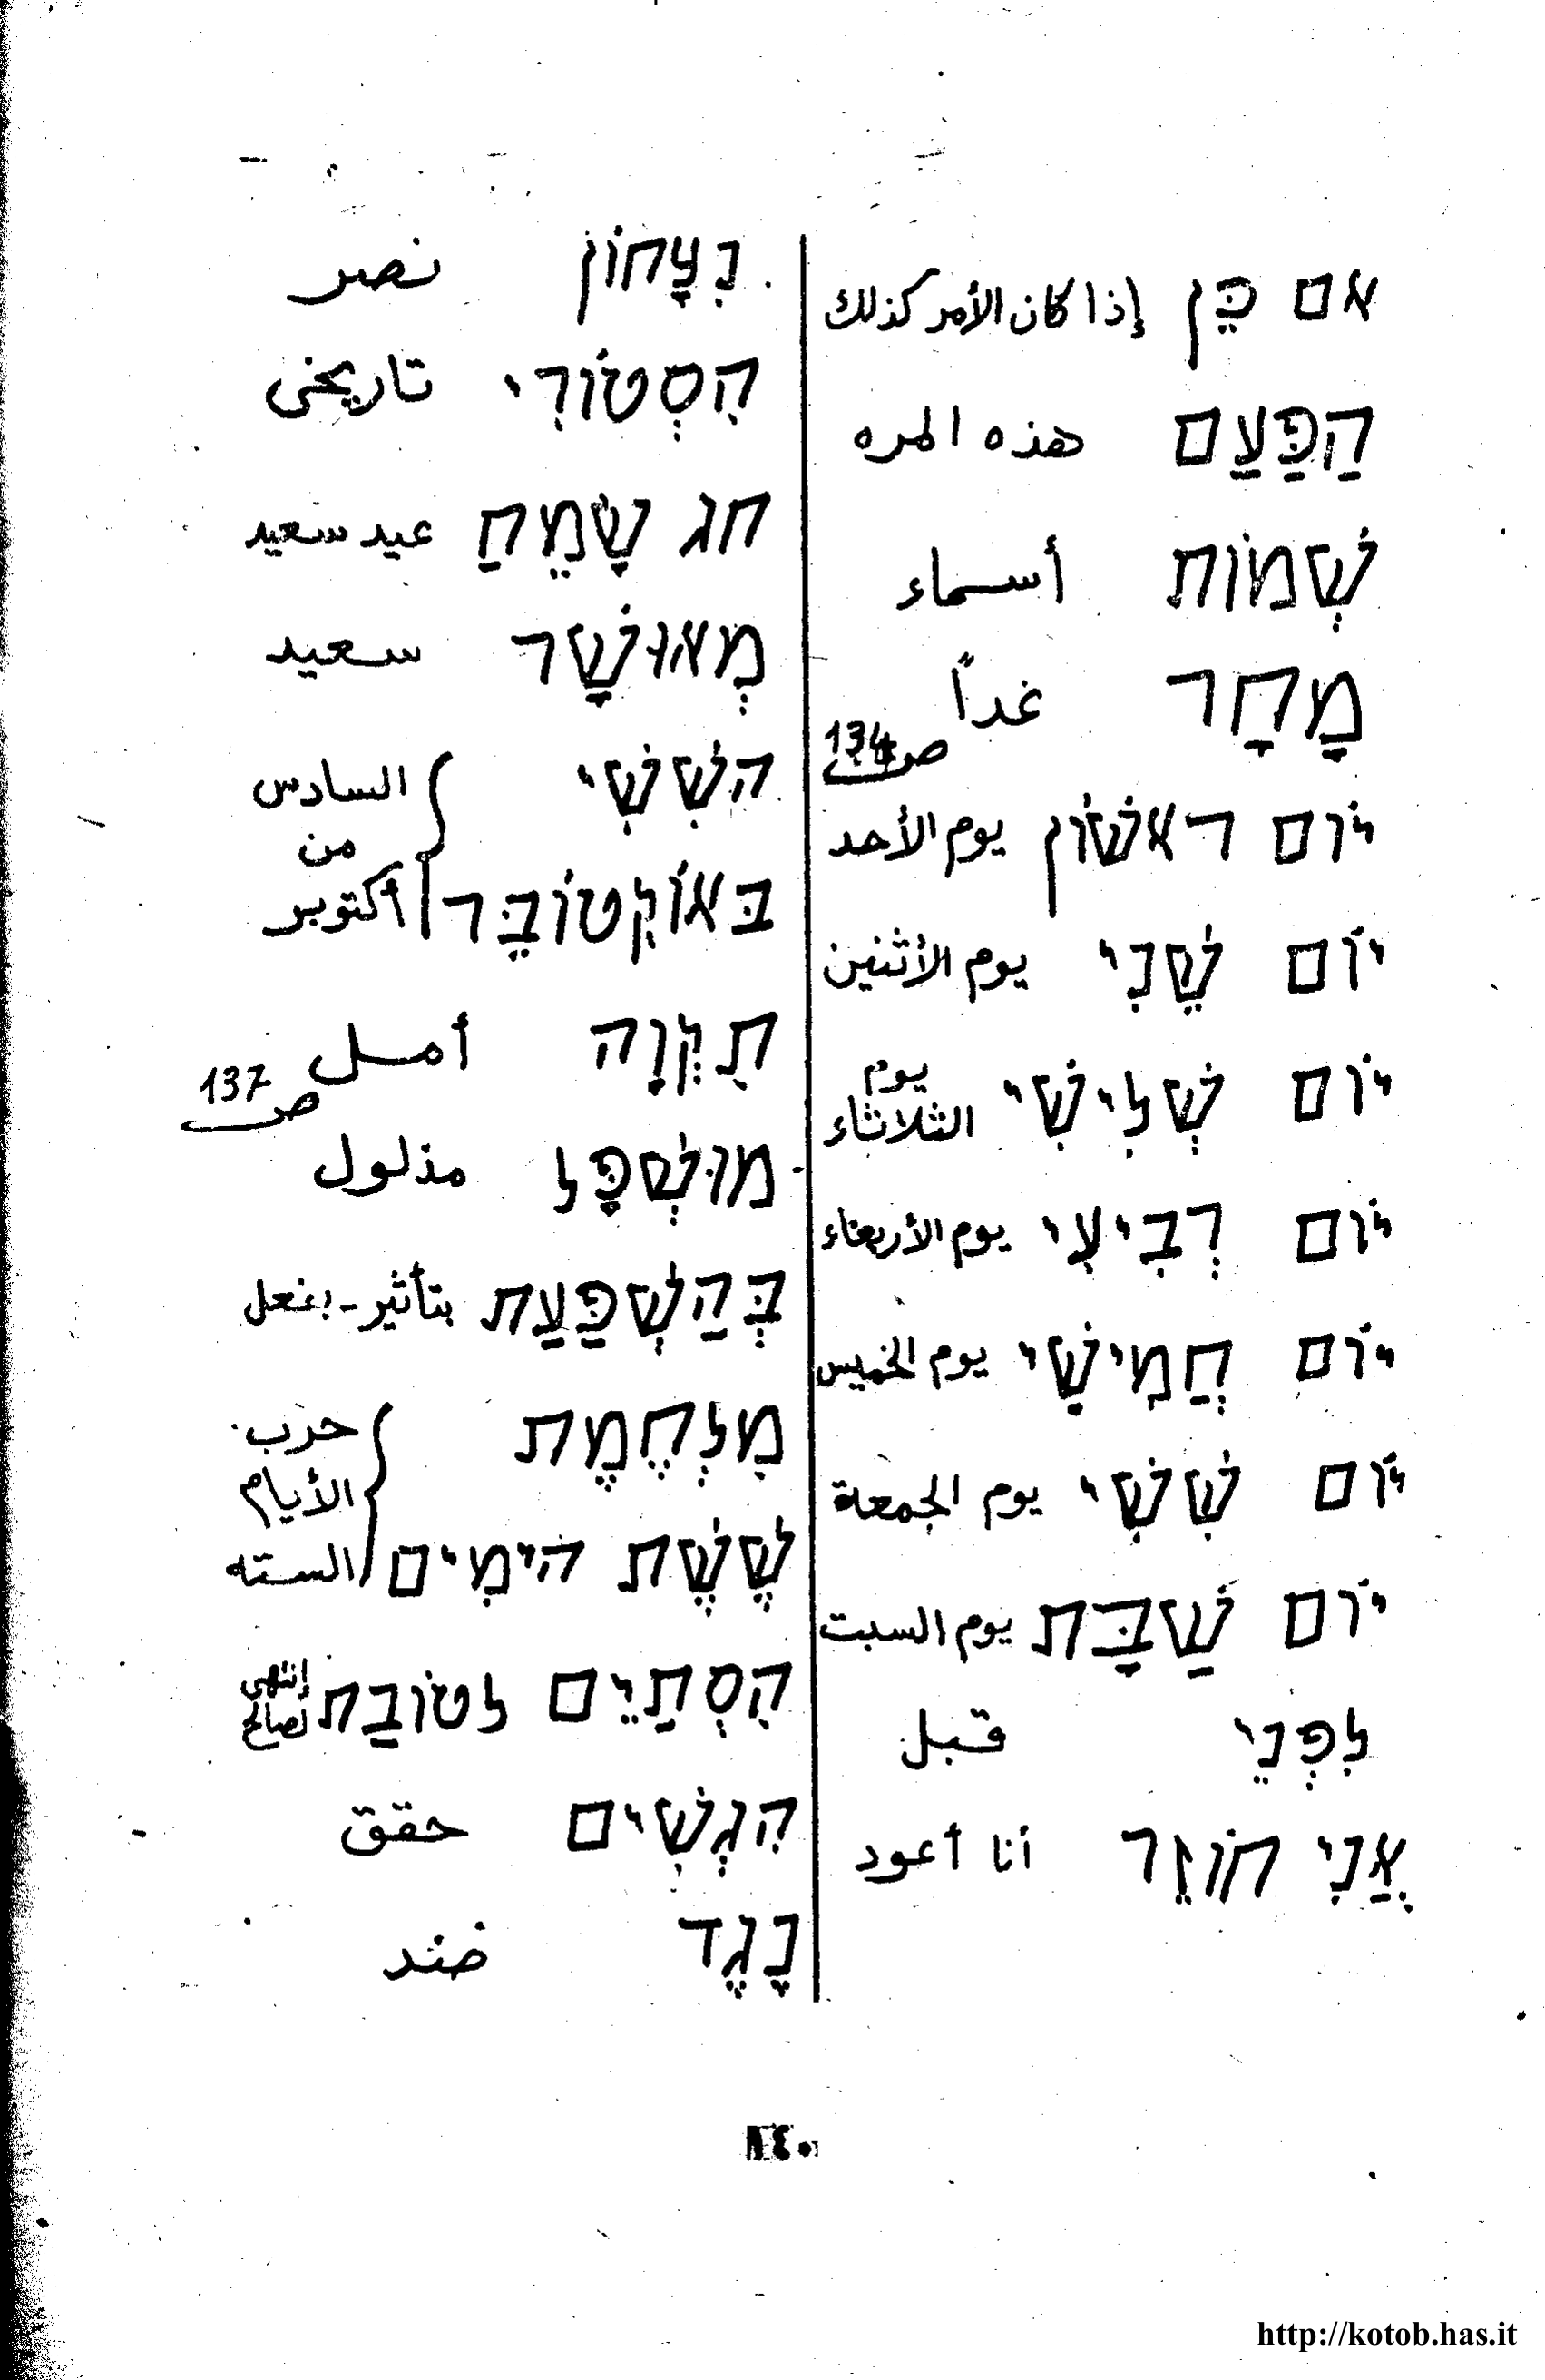 אִם כֵּן إذا كان الأمر كذلك
הַפַּעַם هذه المره
שְׁמוֹת أسماء
מָחָר غداً
ص 134
יוֹם רִאשׁוֹן يوم الأحد
יוֹם שֵׁנִי يوم الأثنين
יוֹם שְׁלִישִׁי يوم الثلاثاء
יוֹם רְבִיעִי يوم الأربعاء
יוֹם חֲמִישִׁי يوم الخميس
יוֹם שִׁשִּׁי يوم الجمعة
יוֹם שַׁבָּת يوم السبت
לִפְנֵי قبل
אֲנִי חוֹזֵר أنا أعود
נִצָּחוֹן نصر
הִסְטוֹרִי تاريخى
חג שָׂמֵחַ عيد سعيد
מְאוּשָׁר سعيد
הַשִּׁשִּׁי السادس
من
בְּאוֹקְטוֹבֶּר أكتوبر
תִקְוָה أمل
ص 137
מוּשְׁפָּל مذلول
בְּהַשְׁפַּעַת بتأثير - بفعل
מִלְחֶמֶת حرب
الأيام
שֶׁשֶׁת הימִים السته
הִסְתַיֵים לטוֹבַת إنتهى لصالح
הִגְשִׁים حقق
נֶגֶד ضد
١٤٠
http://kotob.has.it